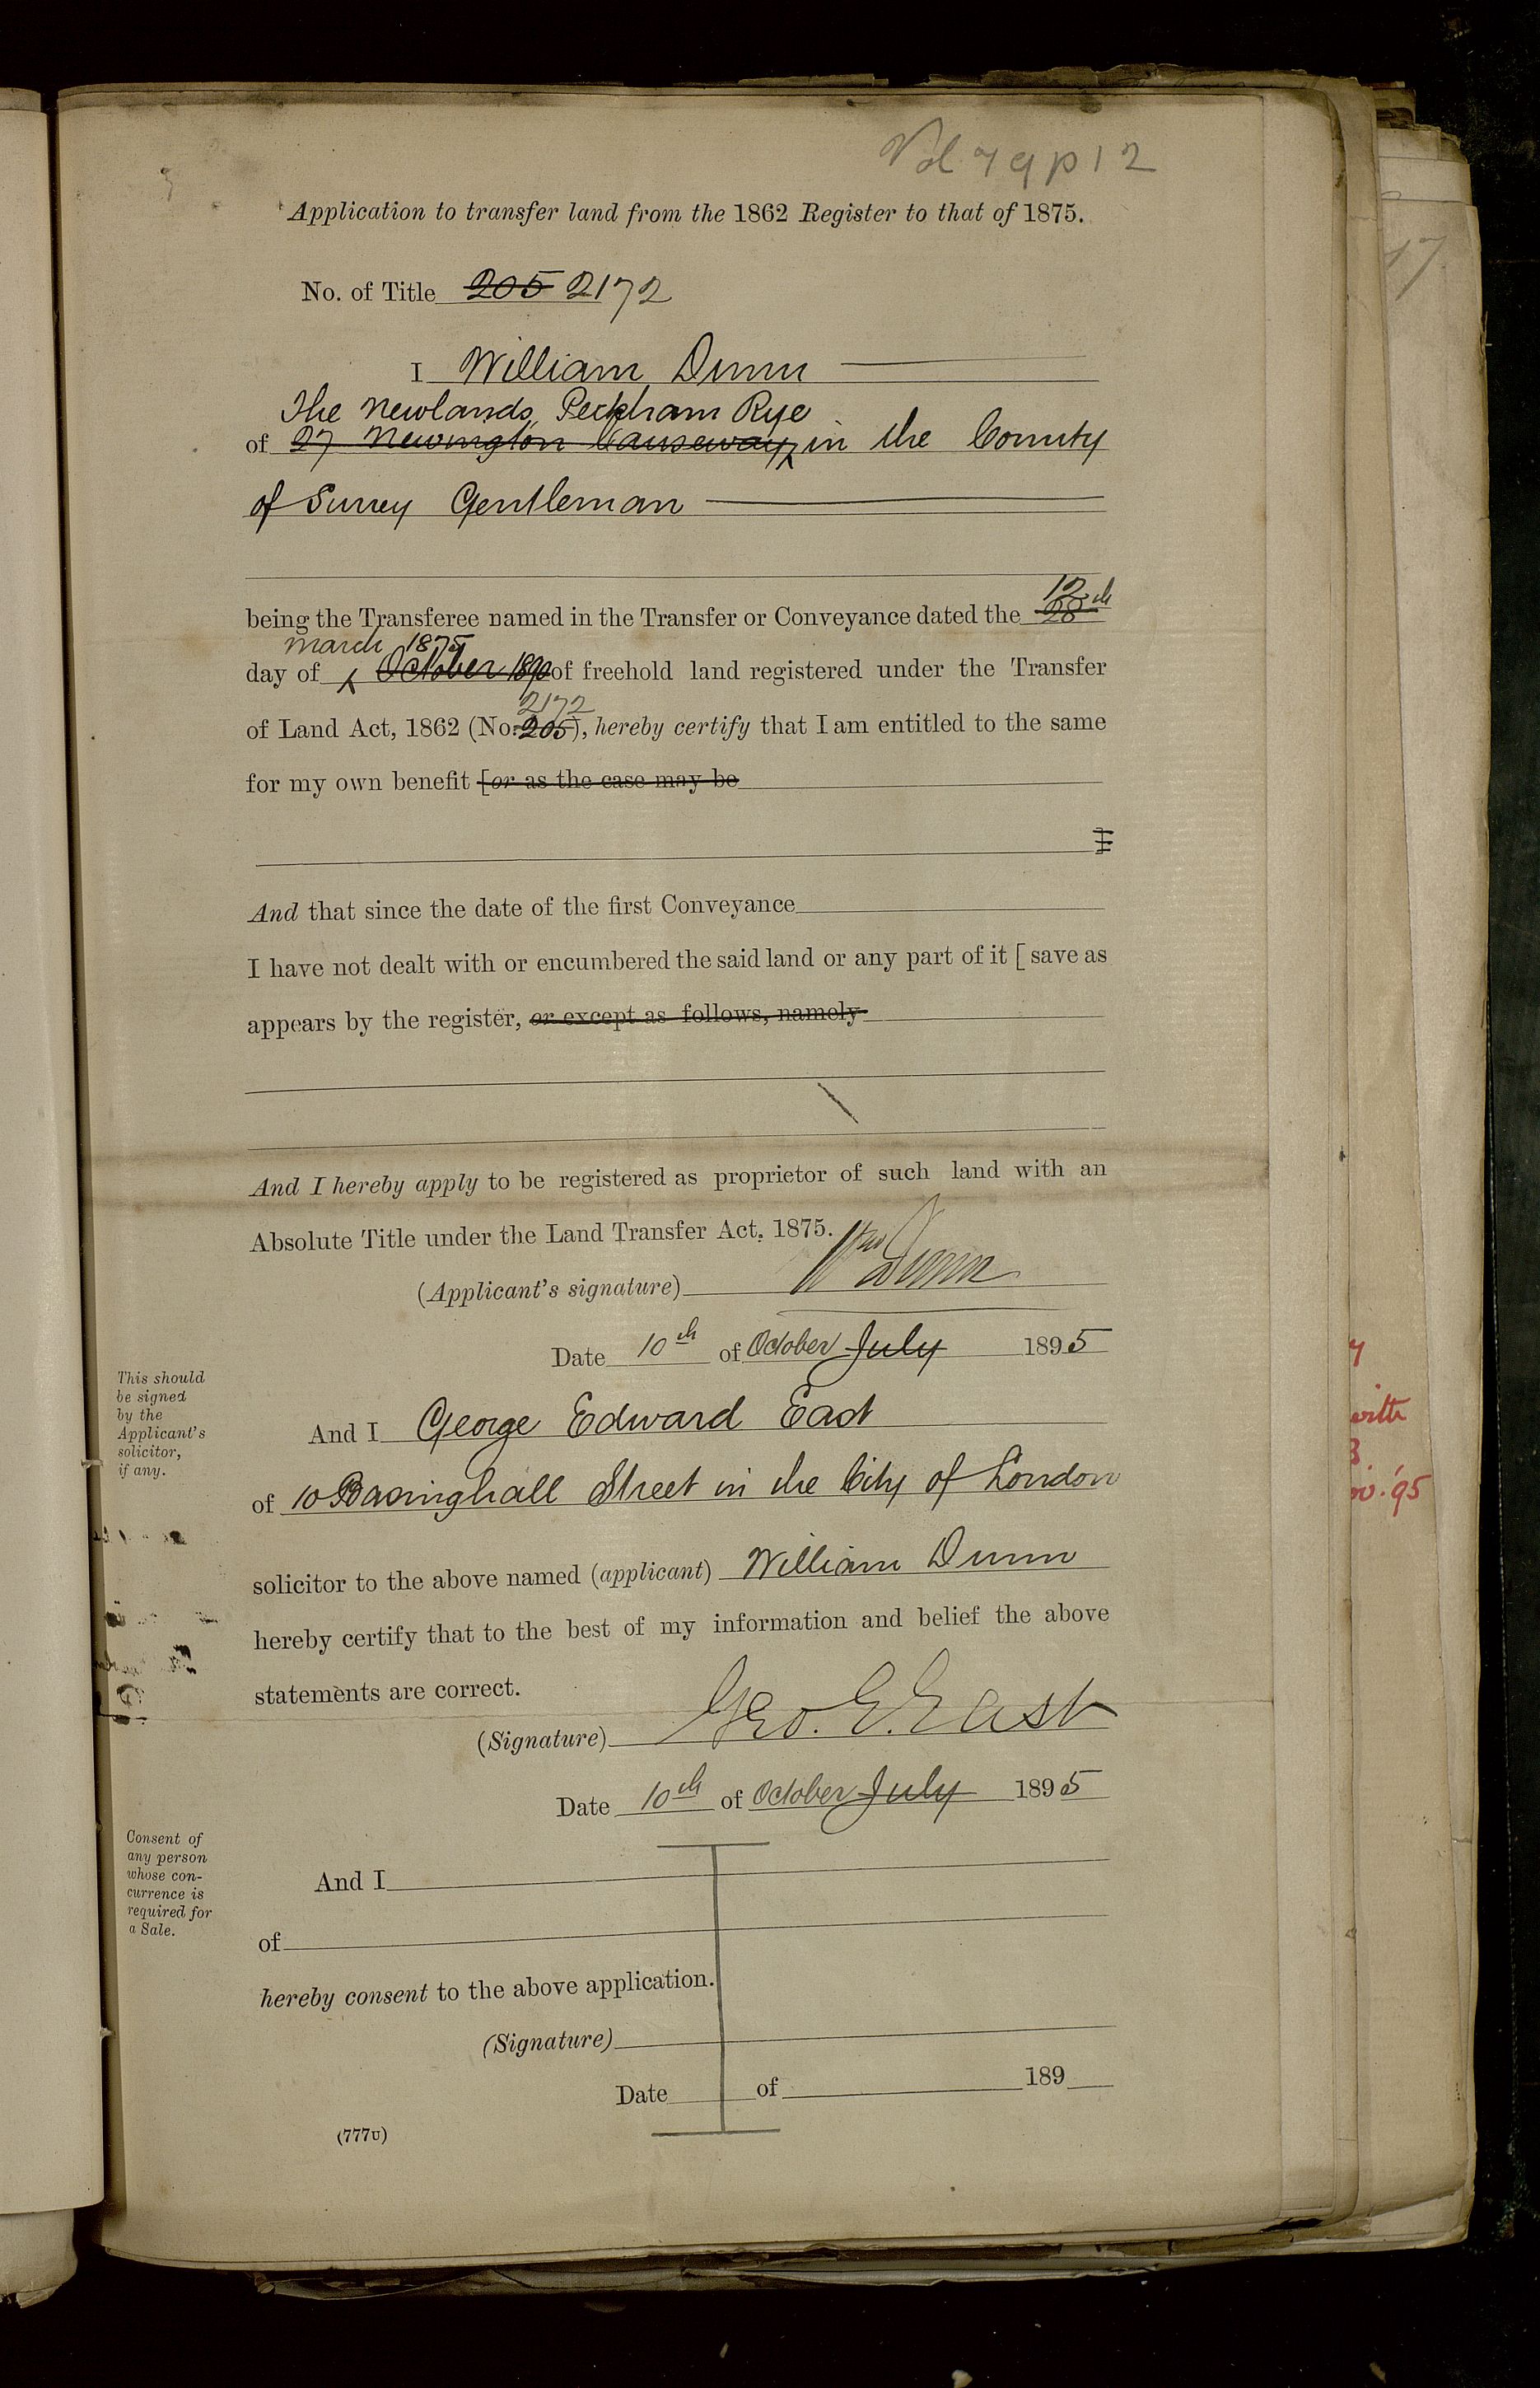 Vol 79 p 12
Application to transfer land from the 1862 Register to that of 1875.
No. of Title 205 2172
I William Dunn
The Newlands, Peckham Rye
of 27 Newington Causeway in the County
of Surrey Gentleman
being the Transferee named in the Transfer or Conveyance dated the 28th 12
March 1875
day of October 1890 of freehold land registered under the Transfer
2172
of Land Act, 1862 (No. 205), hereby certify that I am entitled to the same
for my own benefit [or as the case may be
And that since the date of the first Conveyance
I have not dealt with or encumbered the said land or any part of it [ save as
appears by the register, or except as follows, namely
And I hereby apply to be registered as proprietor of such land with an
Absolute Title under the Land Transfer Act, 1875.
(Applicant's signature) Wm Dunn
Date 10th of October July 1895
This should
be signed
by the
Applicant's
solicitor,
if any.
And I George Edward East
of 10 Basinghall Street in the City of London
solicitor to the above named (applicant) William Dunn
hereby certify that to the best of my information and belief the above
statements are correct.
(Signature) Geo. E. East
Date 10th of October July 1895
Consent of
any person
whose con-
currence is
required for
a Sale.
And I
of
hereby consent to the above application.
(Signature)
Date of 189
(777U)
17
with
3.
. '95